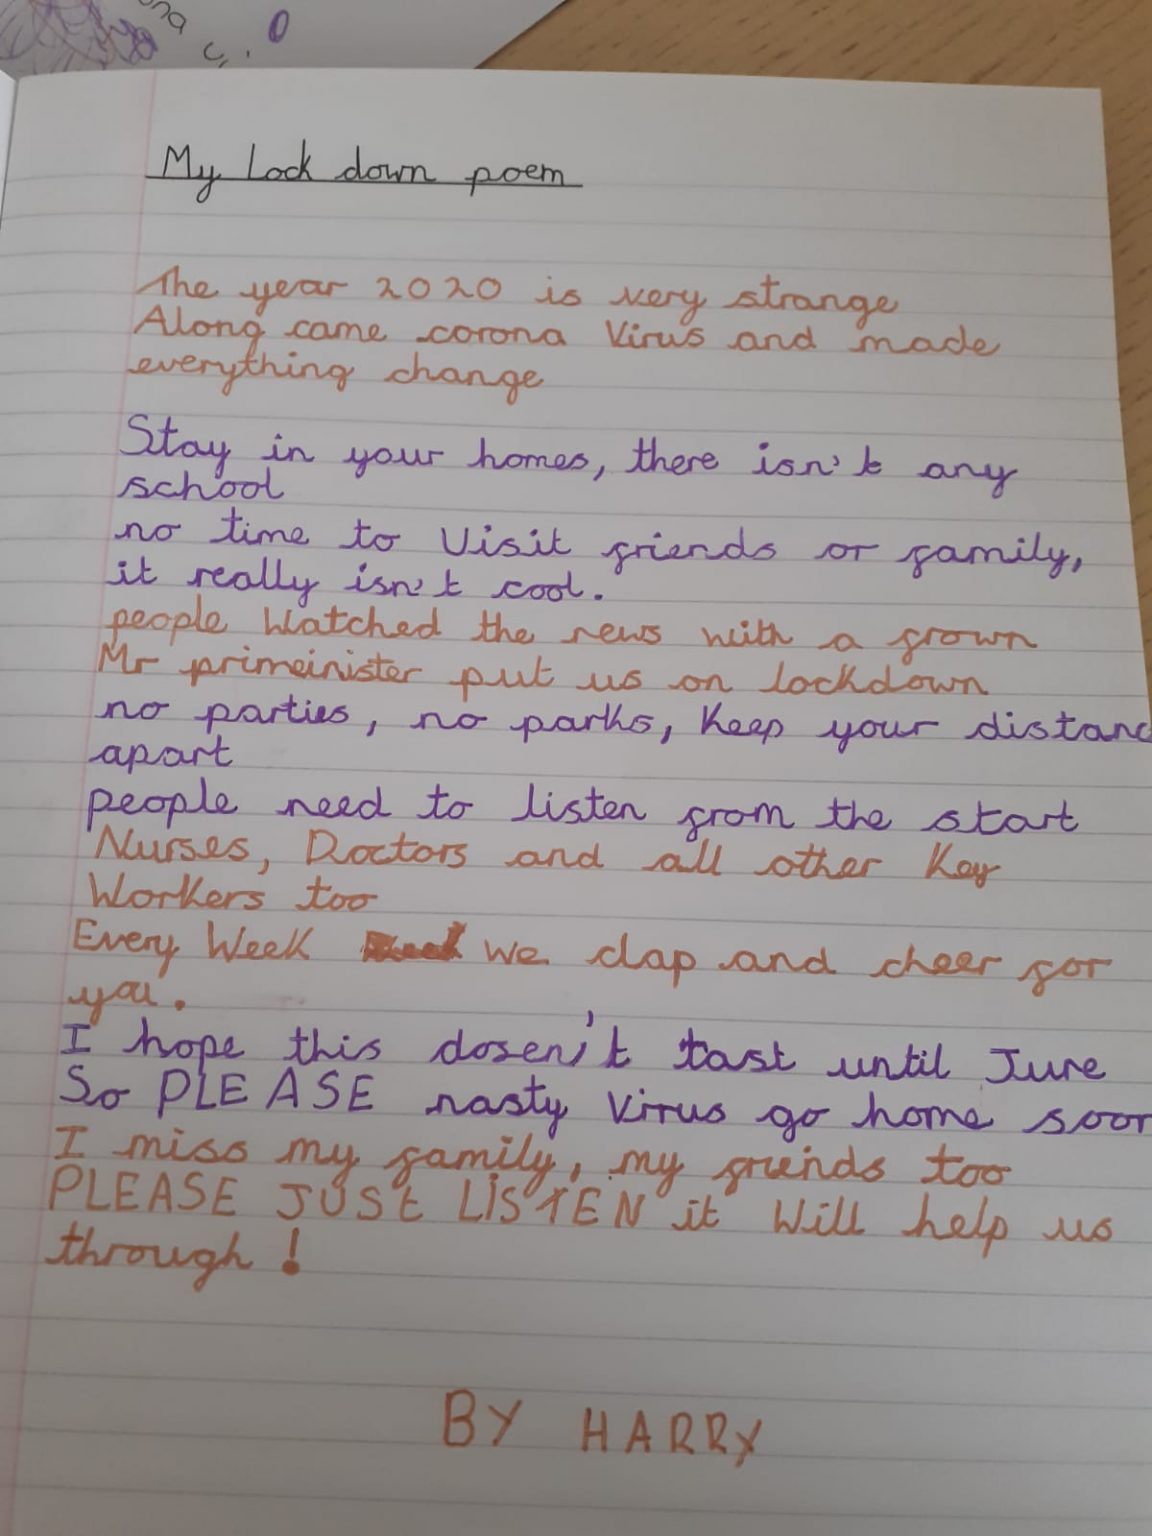 My Lock down poem
The year 2020 is very strange
Along came corona Virus and made
everything change
Stay in your homes, there isn't any
school
no time to Visit friends or family,
it really isn't cool.
people Watched the news with a frown
Mr primeinister put us on lockdown
no parties, no parks, Keep your distanc
apart
people need to listen from the start
Nurses, Doctors and all other Key
Workers too
Every Week we clap and cheer for
you.
I hope this dosen't tast until June
So PLEASE nasty Virus go home soon
I miss my family, my friends too
PLEASE JUSt LISTEN it Will help us
through!
BY HARRY